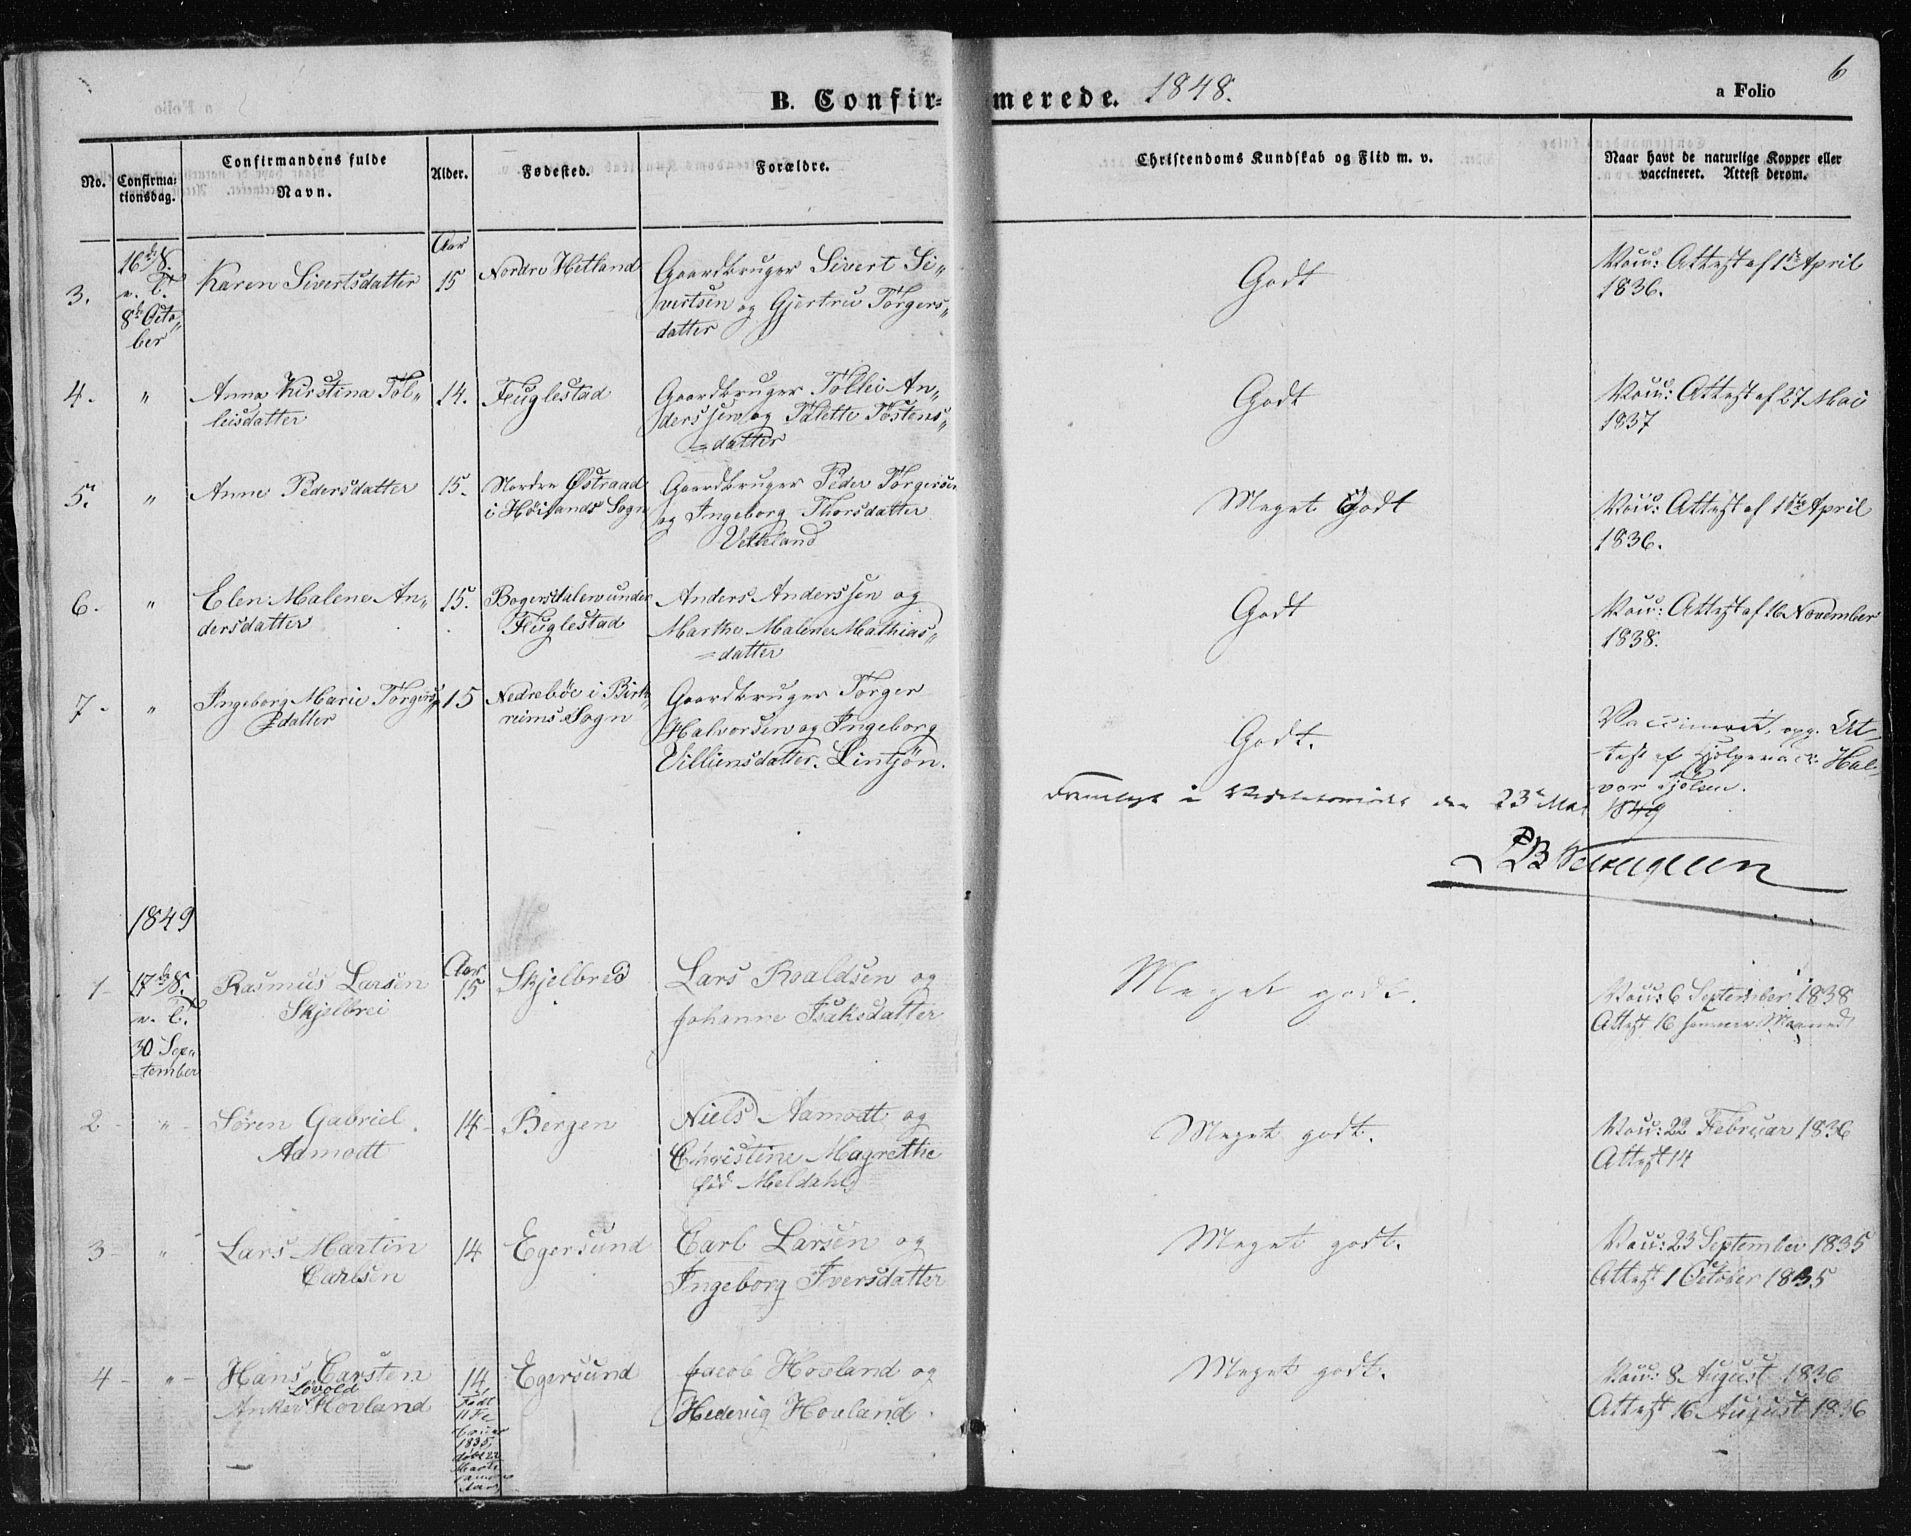 B. Confir=merede. 1848.
a Folio 6
No.
Confirma=
tionsdag.
Confirmandens fulde
Navn.
Alder.
Fødested.
Forældre.
Christendoms Kundskab og Flid m. v.
Naar havt de naturlige Kopper eller
vaccineret. Attest derom.
3.
8de Octo„
ber
Karen Sivertsdatter
Aar
15
Nordre Hetland
Gaardbruger Sivert Si„
vertsen og Gjertru Torgers„
datter
Godt
Vacc: Attest af 1ste April
1836.
4.
"
Anna Kirstina Tol„
leisdatter
14.
Fuglestad
Gaardbruger Tollei An„
derssen og Talette Tostens„
=datter
Godt
Vacc: Attest af 27 Mai
1837
5.
"
Anne Pedersdatter
15.
Nordre Østraad
i Høilands Sogn
Gaardbruger Peder Torgersen
og Ingeborg Thorsdatter
Veteland
Meget Godt
Vacc: Attest af 1ste April
1836.
6.
"
Elen Malene An„
dersdatter
15.
Bogersdalen under
Fuglestad
Anders Anderssen og
Marthe Malene Mathias„
=datter
Godt
Vacc: Attest af 16 November
1838.
7.
"
Ingeborg Marie Torgers„
datter
15
Nedrebøe i Birk„
reims Sogn
Gaardbruger Torger
Halvorsen og Ingeborg
Villiensdatter. Lintjøn.
Godt.
Vaccineret, opg. At„
test af Hjelpevacc. Hal„
vor
Fremlagt i den 23de Mai 1849
1849
1-
30 Sep„
=tember
Rasmus Larsen
Skjelbrei
Aar
15
Skjelbred
Lars Roaldsen og
Johanne Isaksdatter
Meget godt.
Vacc: 6 September 1838
Attest 16 samme Maaned
2-
"
Søren Gabriel
Aamodt
14-
Bergen
Niels Aamodt og
Christine Magrethe
fød Meldahl
Meget godt.
Vacc: 22 Februar 1836
Attest 14
3-
"
Lars Martin
Carlsen
14
Egersund
Carl Larsen og
Ingeborg Iversdatter
Meget godt.
Vacc: 23 September 1835
Attest 1 October 1835
4-
"
Hans Carsten
Løvold
Anker Hovland
14
Født
11 Fe
bruar
1835,
døbt 22
Marts
samme
Aar
Egersund
Jacob Hovland og
Hedevig Hovland.
Meget godt.
Vacc: 8 August 1836
Attest 16 August 1836